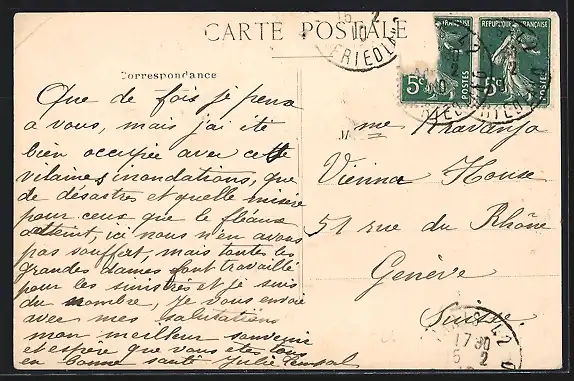 CARTE POSTALE
Correspondance
Que de fois je pense
a vous, mais j'ai été
bien occupée avec cette
vilaines inondations, que
de désastres et quelle misère
pour ceux que le fléaux
atteint, ici nous n'en avons
pas souffert, mais toutes les
grandes dames font travaillé
pour les sinistrés et je suis
du nombre, Je vous envoie
avec mes salutations
mon meilleur souvenir
et espère que vous êtes tous
en bonne santé Julie
REPUBLIQUE FRANÇAISE
5c POSTES
5c POSTES
FRIEDLAND
Mme Kravanja
Vienna House
51 rue du Rhône
Genève
Suisse
42
17 30
5 2